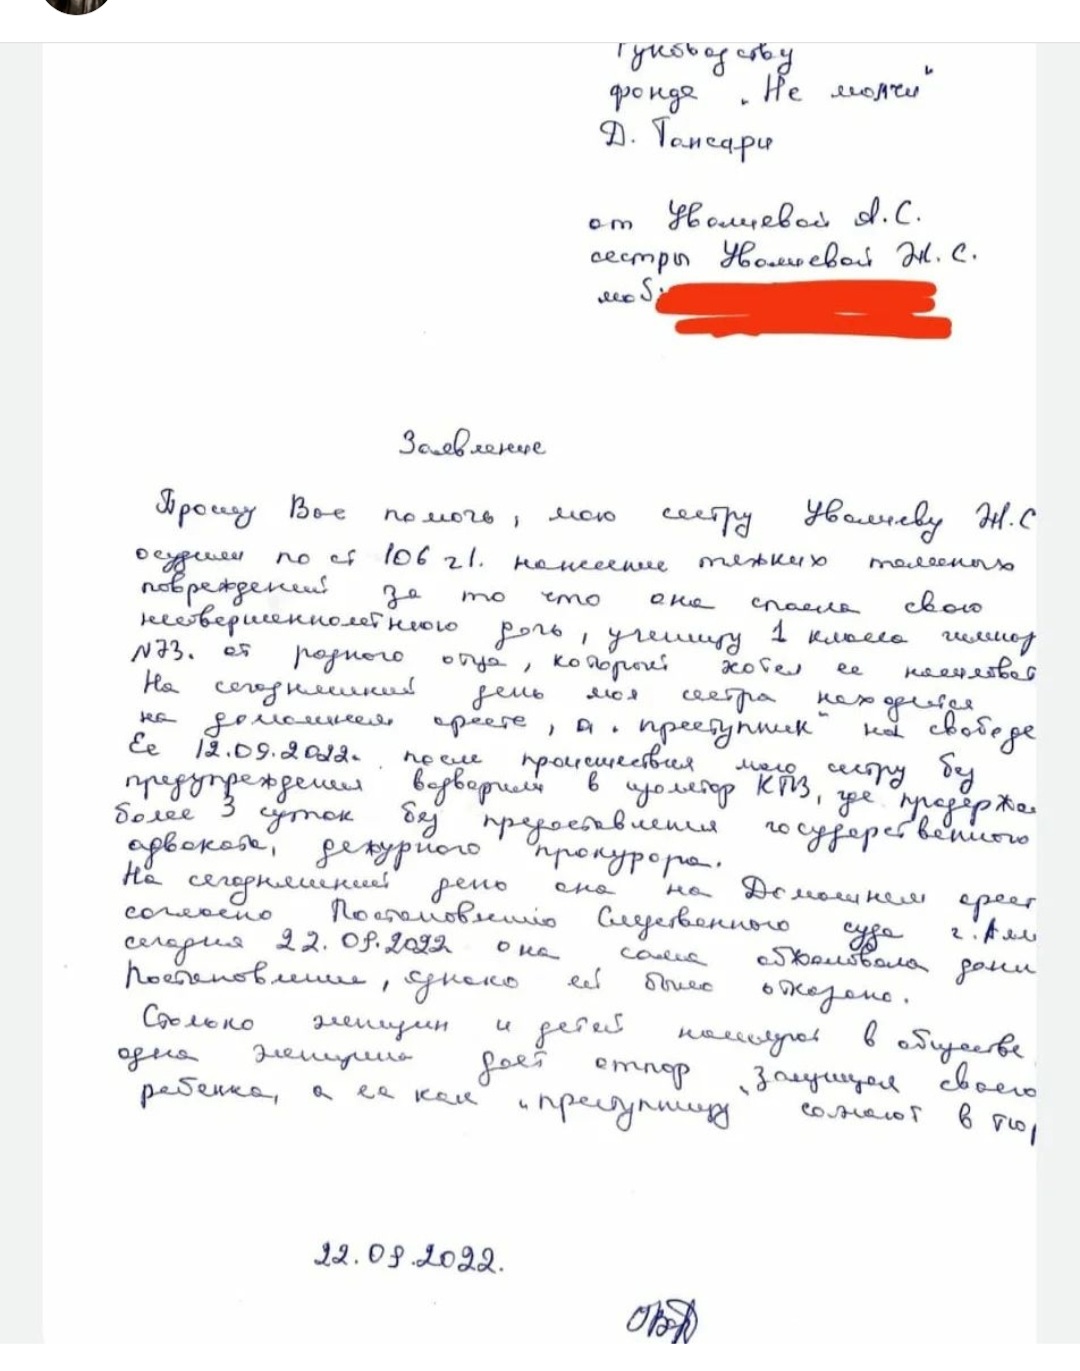 Руководству
фонда "Не молчи"
Д. Тансари
от Уволиевой А.С.
сестры Уволиевой Ж.С.
моб:
Заявление
Прошу Вас помочь, мою сестру Ж.С
осудили по ст 106 ч1. нанесение тяжких телесных
повреждений за то что она спасла свою
несовершеннолетнюю дочь, ученицу 1 класса гимназ
N73. от родного отца, который хотел ее
На сегодняшний день моя сестра находится
на домашнем аресте, а "преступник" на свободе
Ее 12.09.2022. после происшествия мою сестру без
предупреждения водворили в изолятор КПЗ, где продержа
более 3 суток без предоставления государственного
адвоката, дежурного прокурора.
На сегодняшний день она на Домашнем арест
согласно Постановлению Следственного суда г. Алм
сегодня 22.09.2022 она сама обжаловала данн
Постановление, однако ей было отказано.
Столько женщин и детей насилуют в обществе
одна женщина даёт отпор, защищая своего
ребенка, а ее как "преступницу" сажают в тюр
22.09.2022.